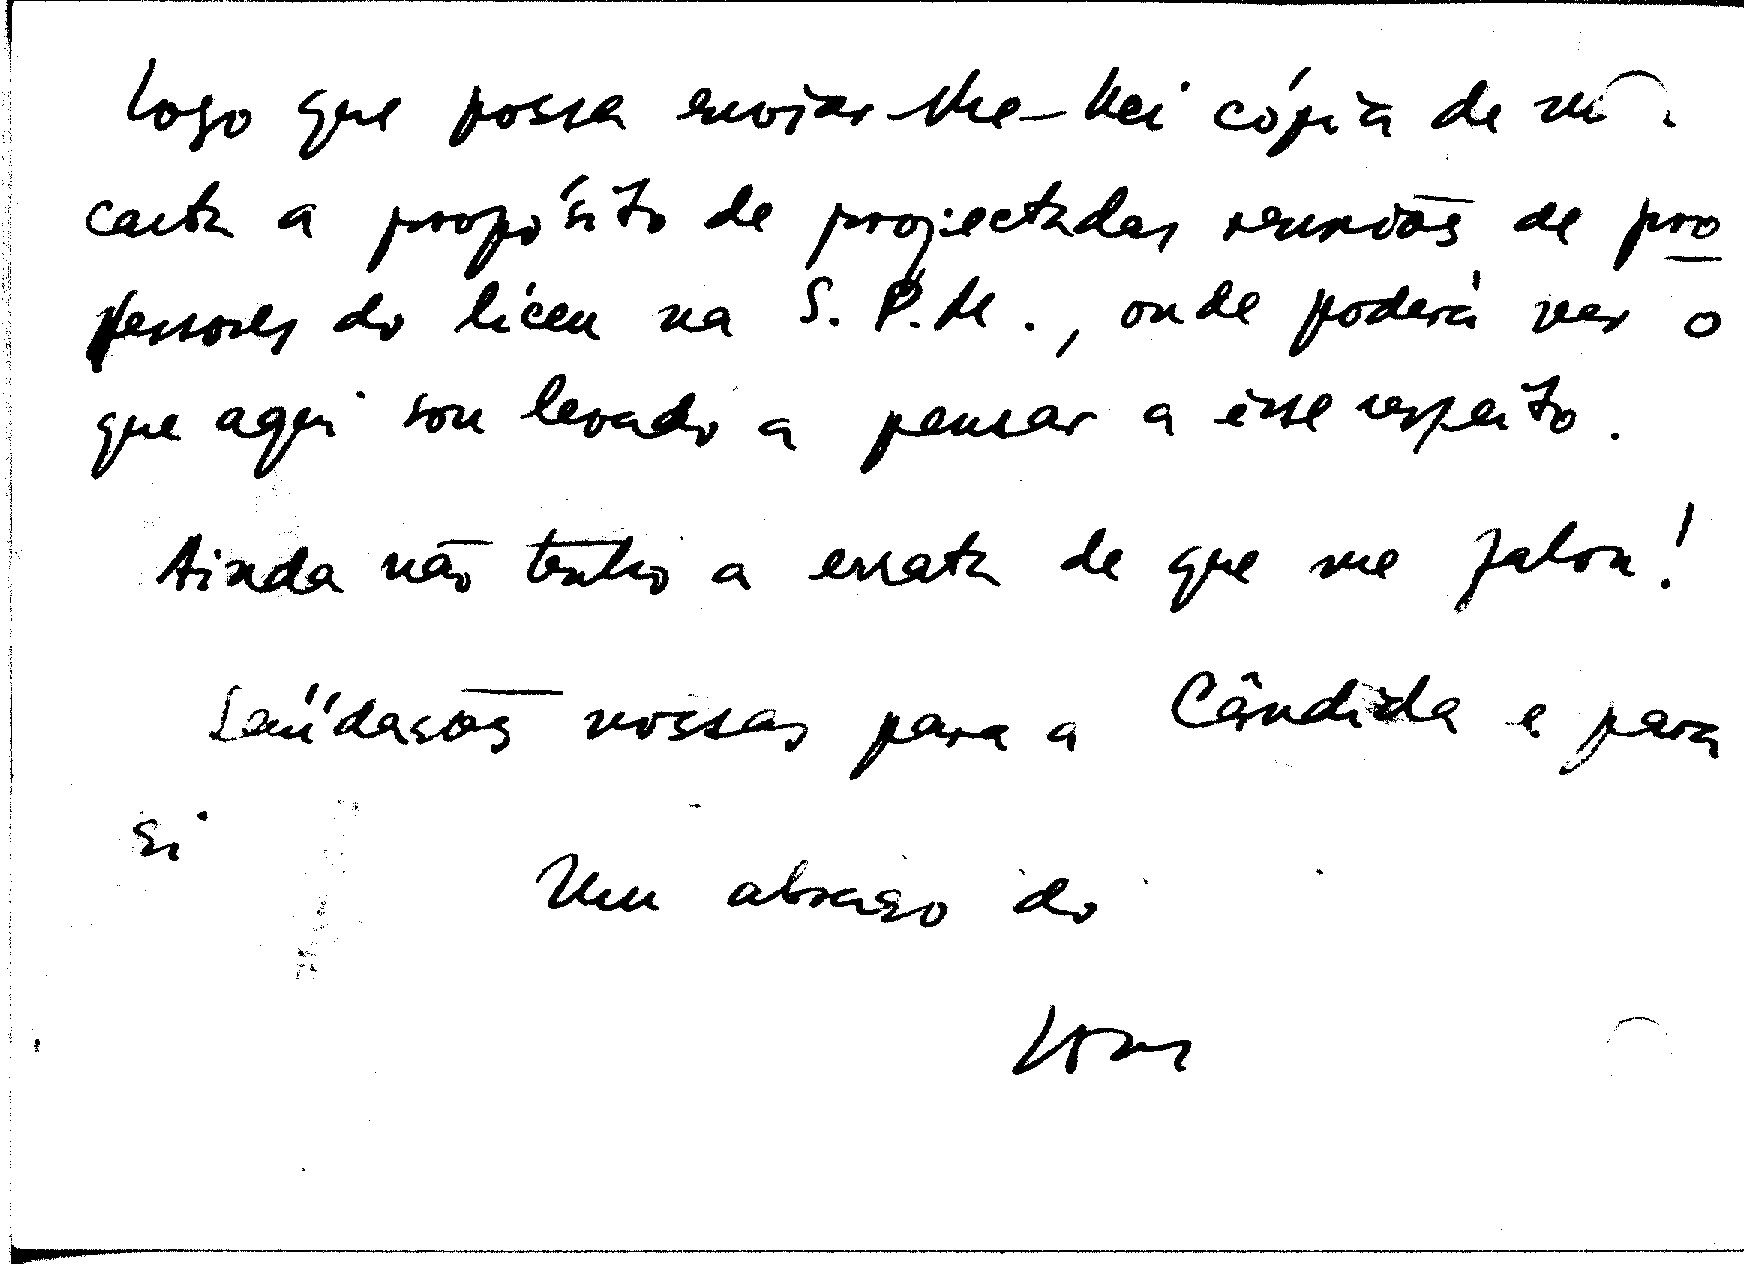 Logo que possa enviar-lhe-hei cópia de
carta a propósito de projectadas reuniões de pro
fessores do liceu na S. P. M., onde poderá ver o
que aqui sou levado a pensar a êsse respeito.
Ainda não tenho a errata de que me falou!
Saüdações nossas para a Cândida e para
si
Um abraço do